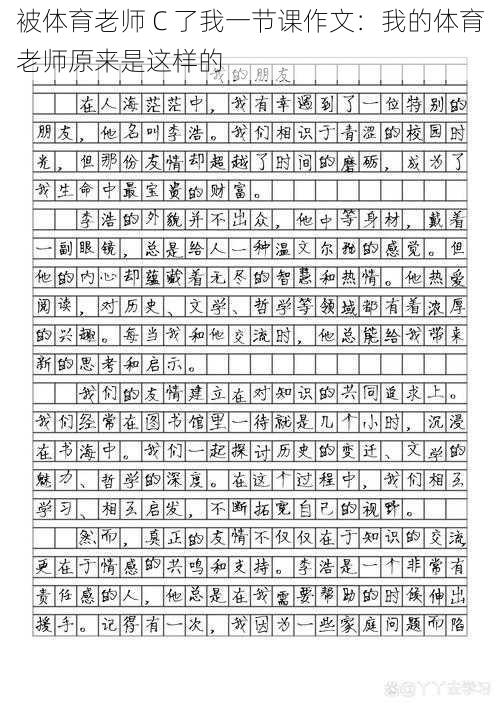 被体育老师 C 了我一节课作文：我的体育
老师原来是这样的
我的朋友
在人海茫茫中，我有幸遇到了一位特别的
朋友，他名叫李浩。我们相识于青涩的校园时
光，但那份友情却超越了时间的磨砺，成为了
我生命中最宝贵的财富。
李浩的外貌并不出众，他中等身材，戴着
一副眼镜，总是给人一种温文尔雅的感觉。但
他的内心却蕴藏着无尽的智慧和热情。他热爱
阅读，对历史、文学、哲学等领域都有着浓厚
的兴趣。每当我和他交流时，他总能给我带来
新的思考和启示。
我们的友情建立在对知识的共同追求上。
我们经常在图书馆里一待就是几个小时，沉浸
在书海中。我们一起探讨历史的变迁、文学的
魅力、哲学的深度。在这个过程中，我们相互
学习、相互启发，不断拓宽自己的视野。
然而，真正的友情不仅仅在于知识的交流，
更在于情感的共鸣和支持。李浩是一个非常有
责任感的人，他总是在我需要帮助的时候伸出
援手。记得有一次，我因为一些家庭问题而陷
@丫丫去学习